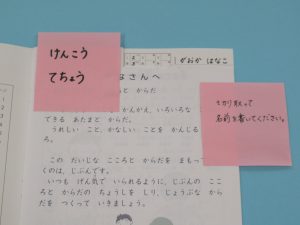 けんこう
てちょう
がおか はなこ
なさんへ
と からだ
かんがえ、いろいろな
できる あたまと からだ。
うれしい こと、かなしい ことを かんじる
ろ。
この だいじな こころと からだを まもって
くのは、じぶんです。
いつも げん気で いられるように、じぶんの ここ
ろと からだの ちょうしを しり、じょうぶな から
だを つくって いきましょう。
切り取って
名前を書いてください。